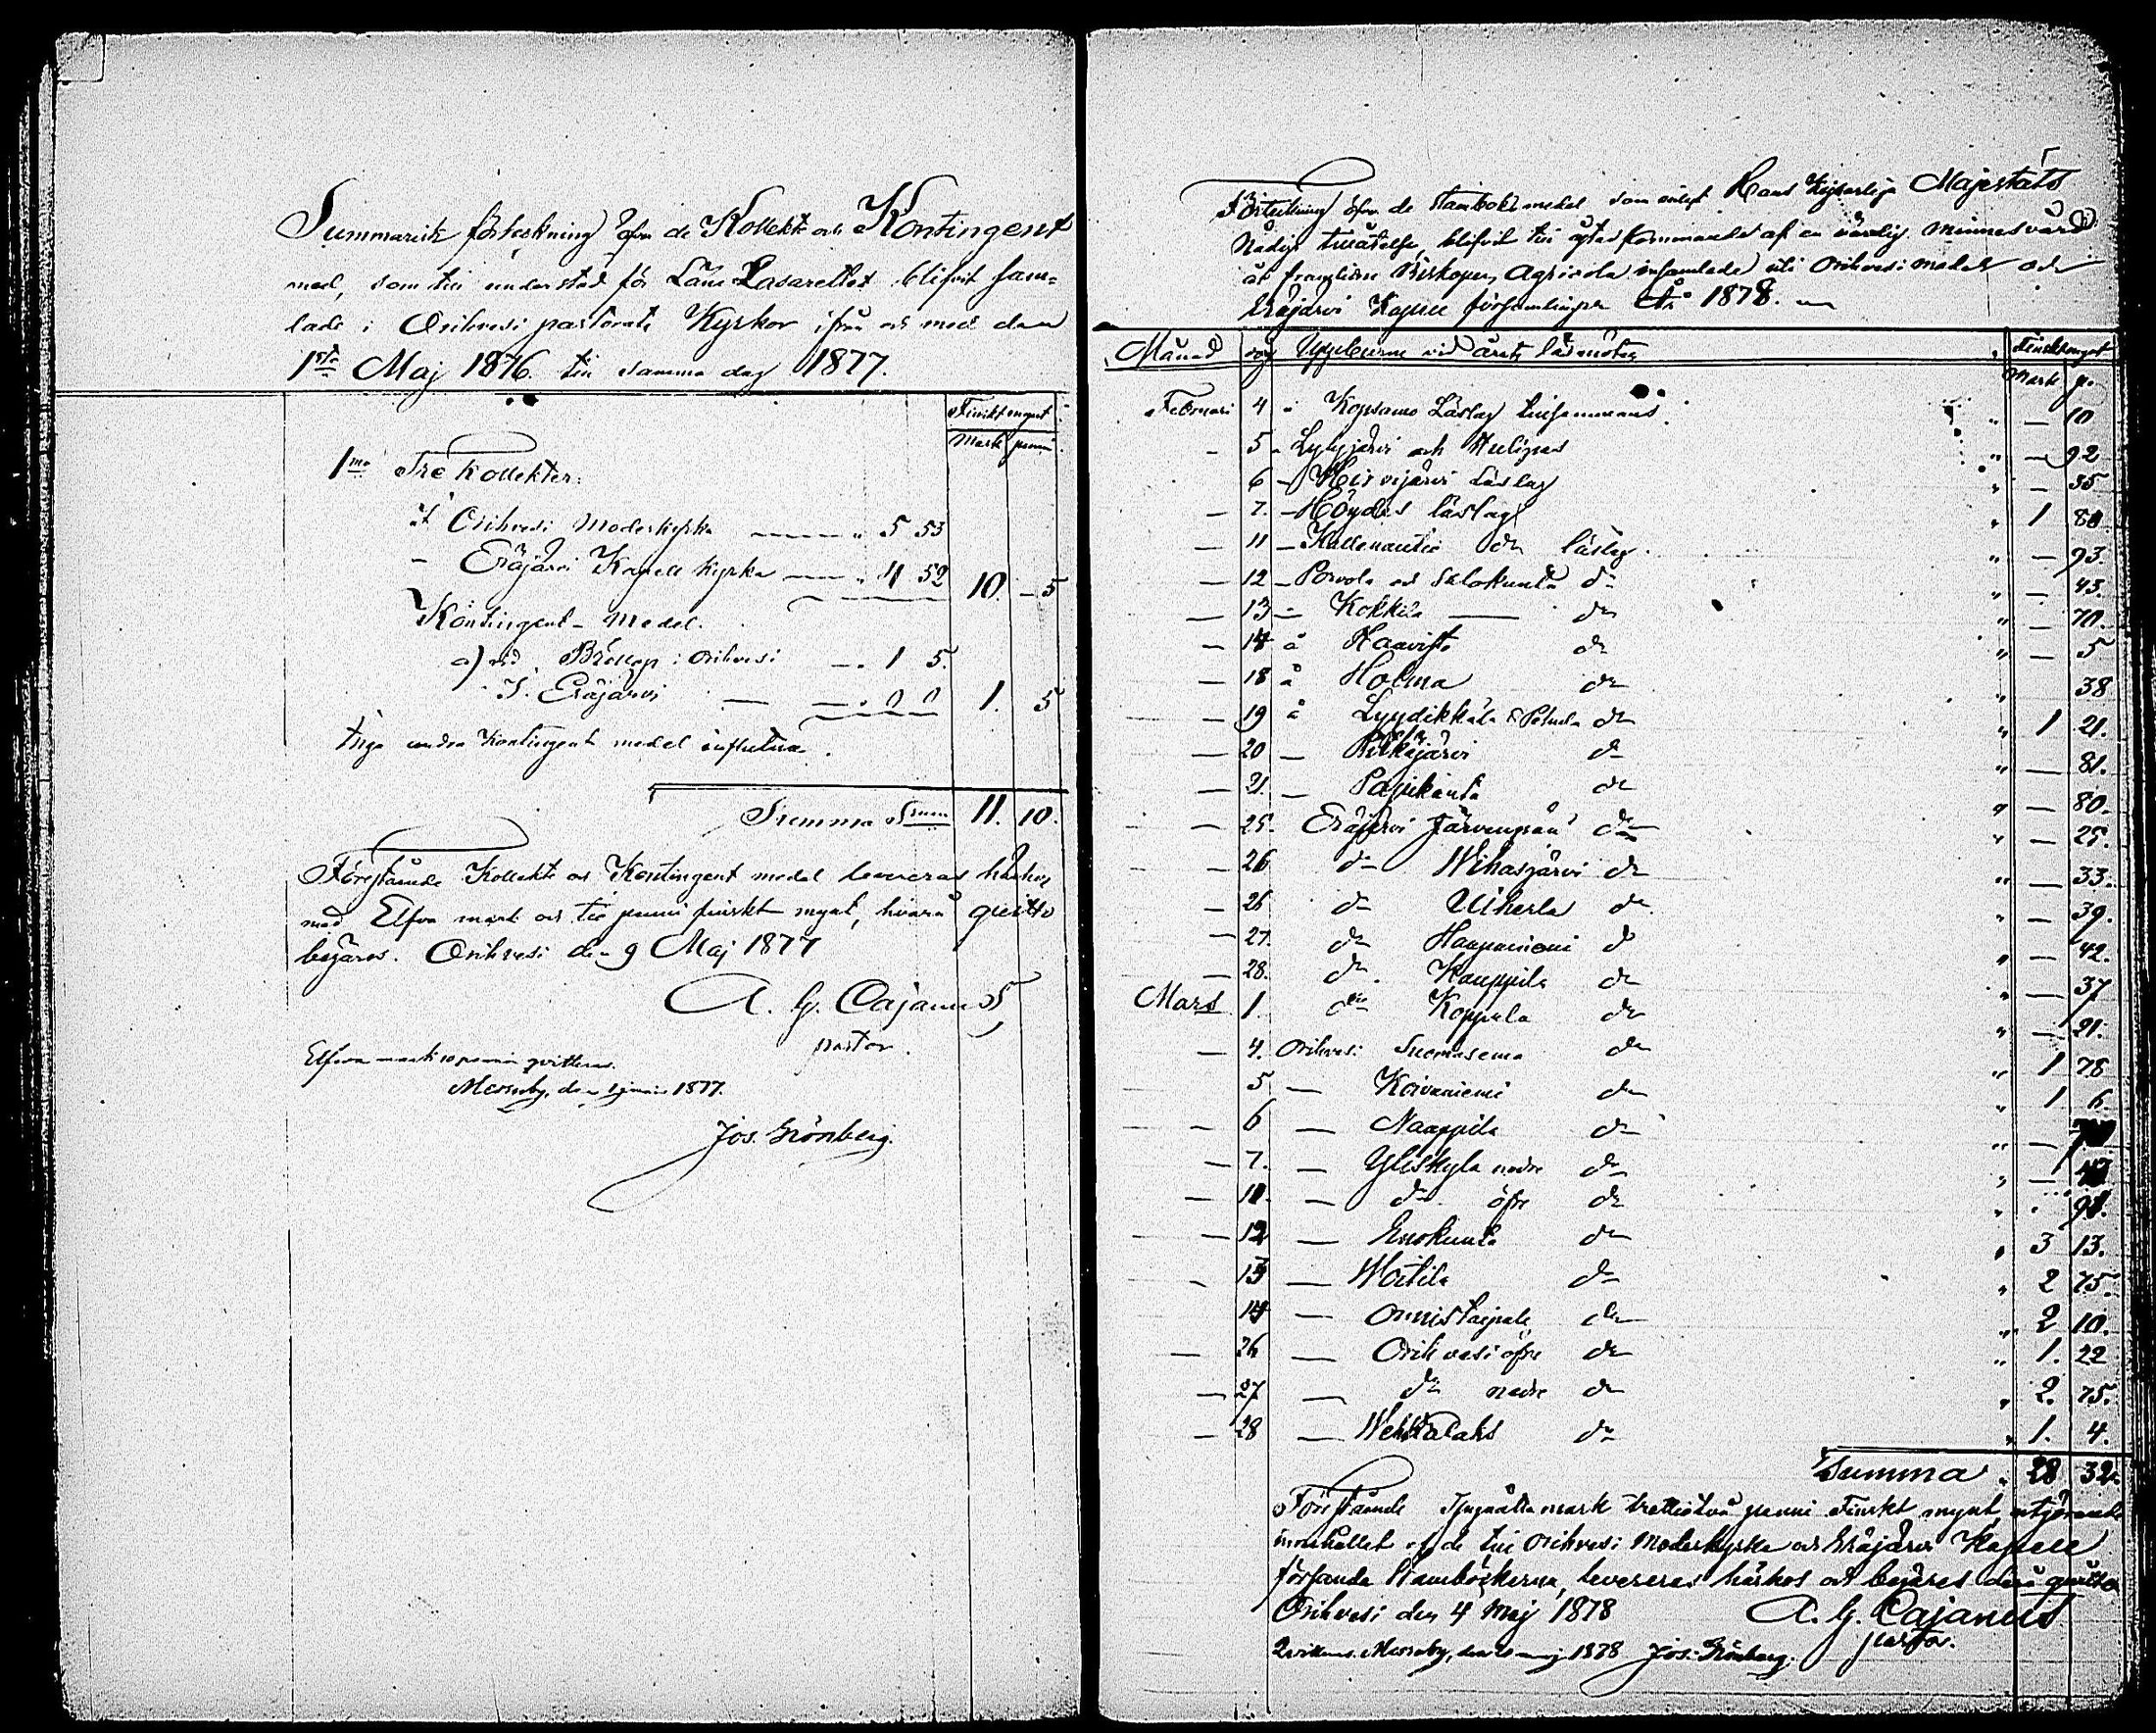 Summarisk förteckning öfver de Kollekt och Kontingent
med, som till understöd för Läns Lasarettet blifvit sam=
lade i Orihvesi pastorats Kyrkor ifrån och med den
1sta Maj 1876. till samma dag 1877.
Finskt mynt
Mark penni
1mo Tre Kollekter:
i Orihvesi Moderkyrka — " 5 53
— Eräjärvi Kapell kyrka — " 4 52 10. — 5
Kontingent-Medel.
a) vid Bröllop i Orihvesi — 1 5.
I. Eräjärvi — — 0 0 1. 5
Inga andra Kontingent medel influtna.
Summa Smm 11. 10.
Förestående Kollekt och Kontingent medel levereras härhos
med Elfva mark och tio penni finskt mynt, hvarå quitto
begäres. Orihvesi den 9 Maj 1877
A. G. Cajanus
pastor.
Elfva mark 10 penni qvitteras.
Messuby, den 1 juni 1877.
Jos. Grönberg.
Förteckning öfver de Stamboks medel som enligt Hans Kejserliga Majestäts
Nådiga tillåtelse, blifvit till åstadkommande af en värdig minnesvård
åt framlidne Biskopen Agricola insamlade uti Orihvesi moder och
Eräjärvi Kapell församlingar År 1878.
Månad dag Uppburne vid årets läsmöten Finskt mynt
Mark p.
Februari 4 i Kopsamo Läslag tillsammans " — 10
— 5 — Lyhyjärvi och " — 92
6 — Hirvijärvi Läslag " — 35
— 7. — Höydes läslag " 1 80
— 11 — Kallenautio do läslag. " — 93.
— 12 — Porvola och Salokunta do " — 43.
— 13 — Kokkila — do " — 70.
— 14 å Haavisto do " — 5
— 18 å Holma do " 38
— 19 å Lyydikkälä & Pehula do " 1 21.
— 20 — Pitkäjärvi do " — 81.
— 21. — Papikanta do " — 80.
— 25. Eräjärvi Järvenpää do " — 25.
— 26 do Wihasjärvi do " — 33.
— 26 do Uiherla do " — 39.
— 27. do Haapaniemi do " — 42.
— 28. do Kauppila do " — 37
Mars 1. do Koppala do " — 21.
— 4. Orihvesi Suomasema do " 1 78
5 — Koivuniemi do " 1 6.
— 6 — Naappila do " —
— 7. — Yliskylä nedre do " —
— 11. — do öfre do " 91.
— 12 — Enokunta do " 3 13.
— 13 — Woitila do " 2 75.
14 — Onnistaipale do " 2 10.
— 26 — Orihvesi öfre do " 1. 22
— 27 — do nedre do " 2. 75.
— 28 — Wehkalaks do " 1. 4.
Summa " 28 32.
Förestående Tjuguåtta mark trettiotvå penni Finskt mynt, utgörande
innehållet af de till Orihvesi Moderkyrka och Eräjärvi Kapell
försända Stamböckerna, levereras härhos och begäres derå quitto
Orihvesi den 4 Maj 1878 A. G. Cajanus
pastor.
Qvitteras. Messuby, den 20 maj 1878 Jos. Grönberg.